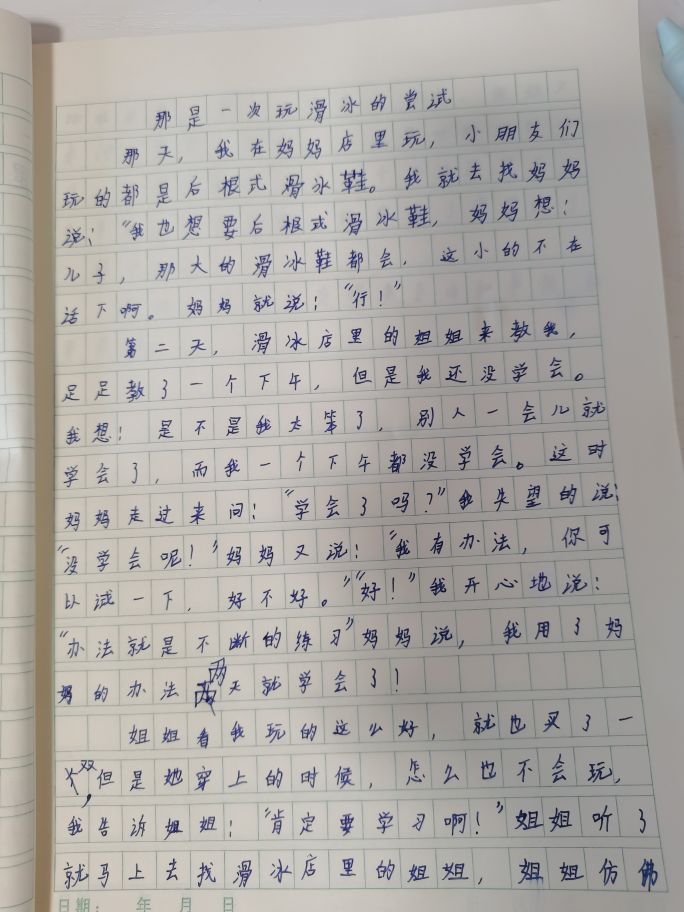 那是一次玩滑冰的尝试
那天，我在妈妈店里玩，小朋友们
玩的都是后根式滑冰鞋。我就去找妈妈
说：“我也想要后根式滑冰鞋，妈妈想：
儿子，那大的滑冰鞋都会，这小的不在
话下啊。妈妈就说：“行！”
第二天，滑冰店里的姐姐来教我，
足足教了一个下午，但是我还没学会。
我想：是不是我太笨了，别人一会儿就
学会了，而我一个下午都没学会。这时
妈妈走过来问：“学会了吗？”我失望的说：
“没学会呢！”妈妈又说：“我有办法，你可
以试一下，好不好。”“好！”我开心地说：
“办法就是不断的练习”妈妈说，我用了妈
妈的办法两天就学会了！
姐姐看我玩的这么好，就也买了一
双，但是她穿上的时候，怎么也不会玩，
我告诉姐姐：“肯定要学习啊！”姐姐听了
就马上去找滑冰店里的姐姐，姐姐仿佛
日期： 年 月 日